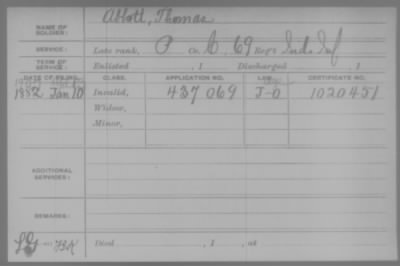 Abbott, Thomas
NAME OF SOLDIER:
SERVICE: Late rank, P Co. C, 69 Reg't Ind. Inf
TERM OF SERVICE: Enlisted , 1 Discharged , 1
DATE OF FILING. CLASS. APPLICATION NO. LAW. CERTIFICATE NO.
1882 Jan 10 Invalid, 437 069 1020451
Widow,
Minor,
ADDITIONAL SERVICES:
REMARKS:
Died , 1 , at